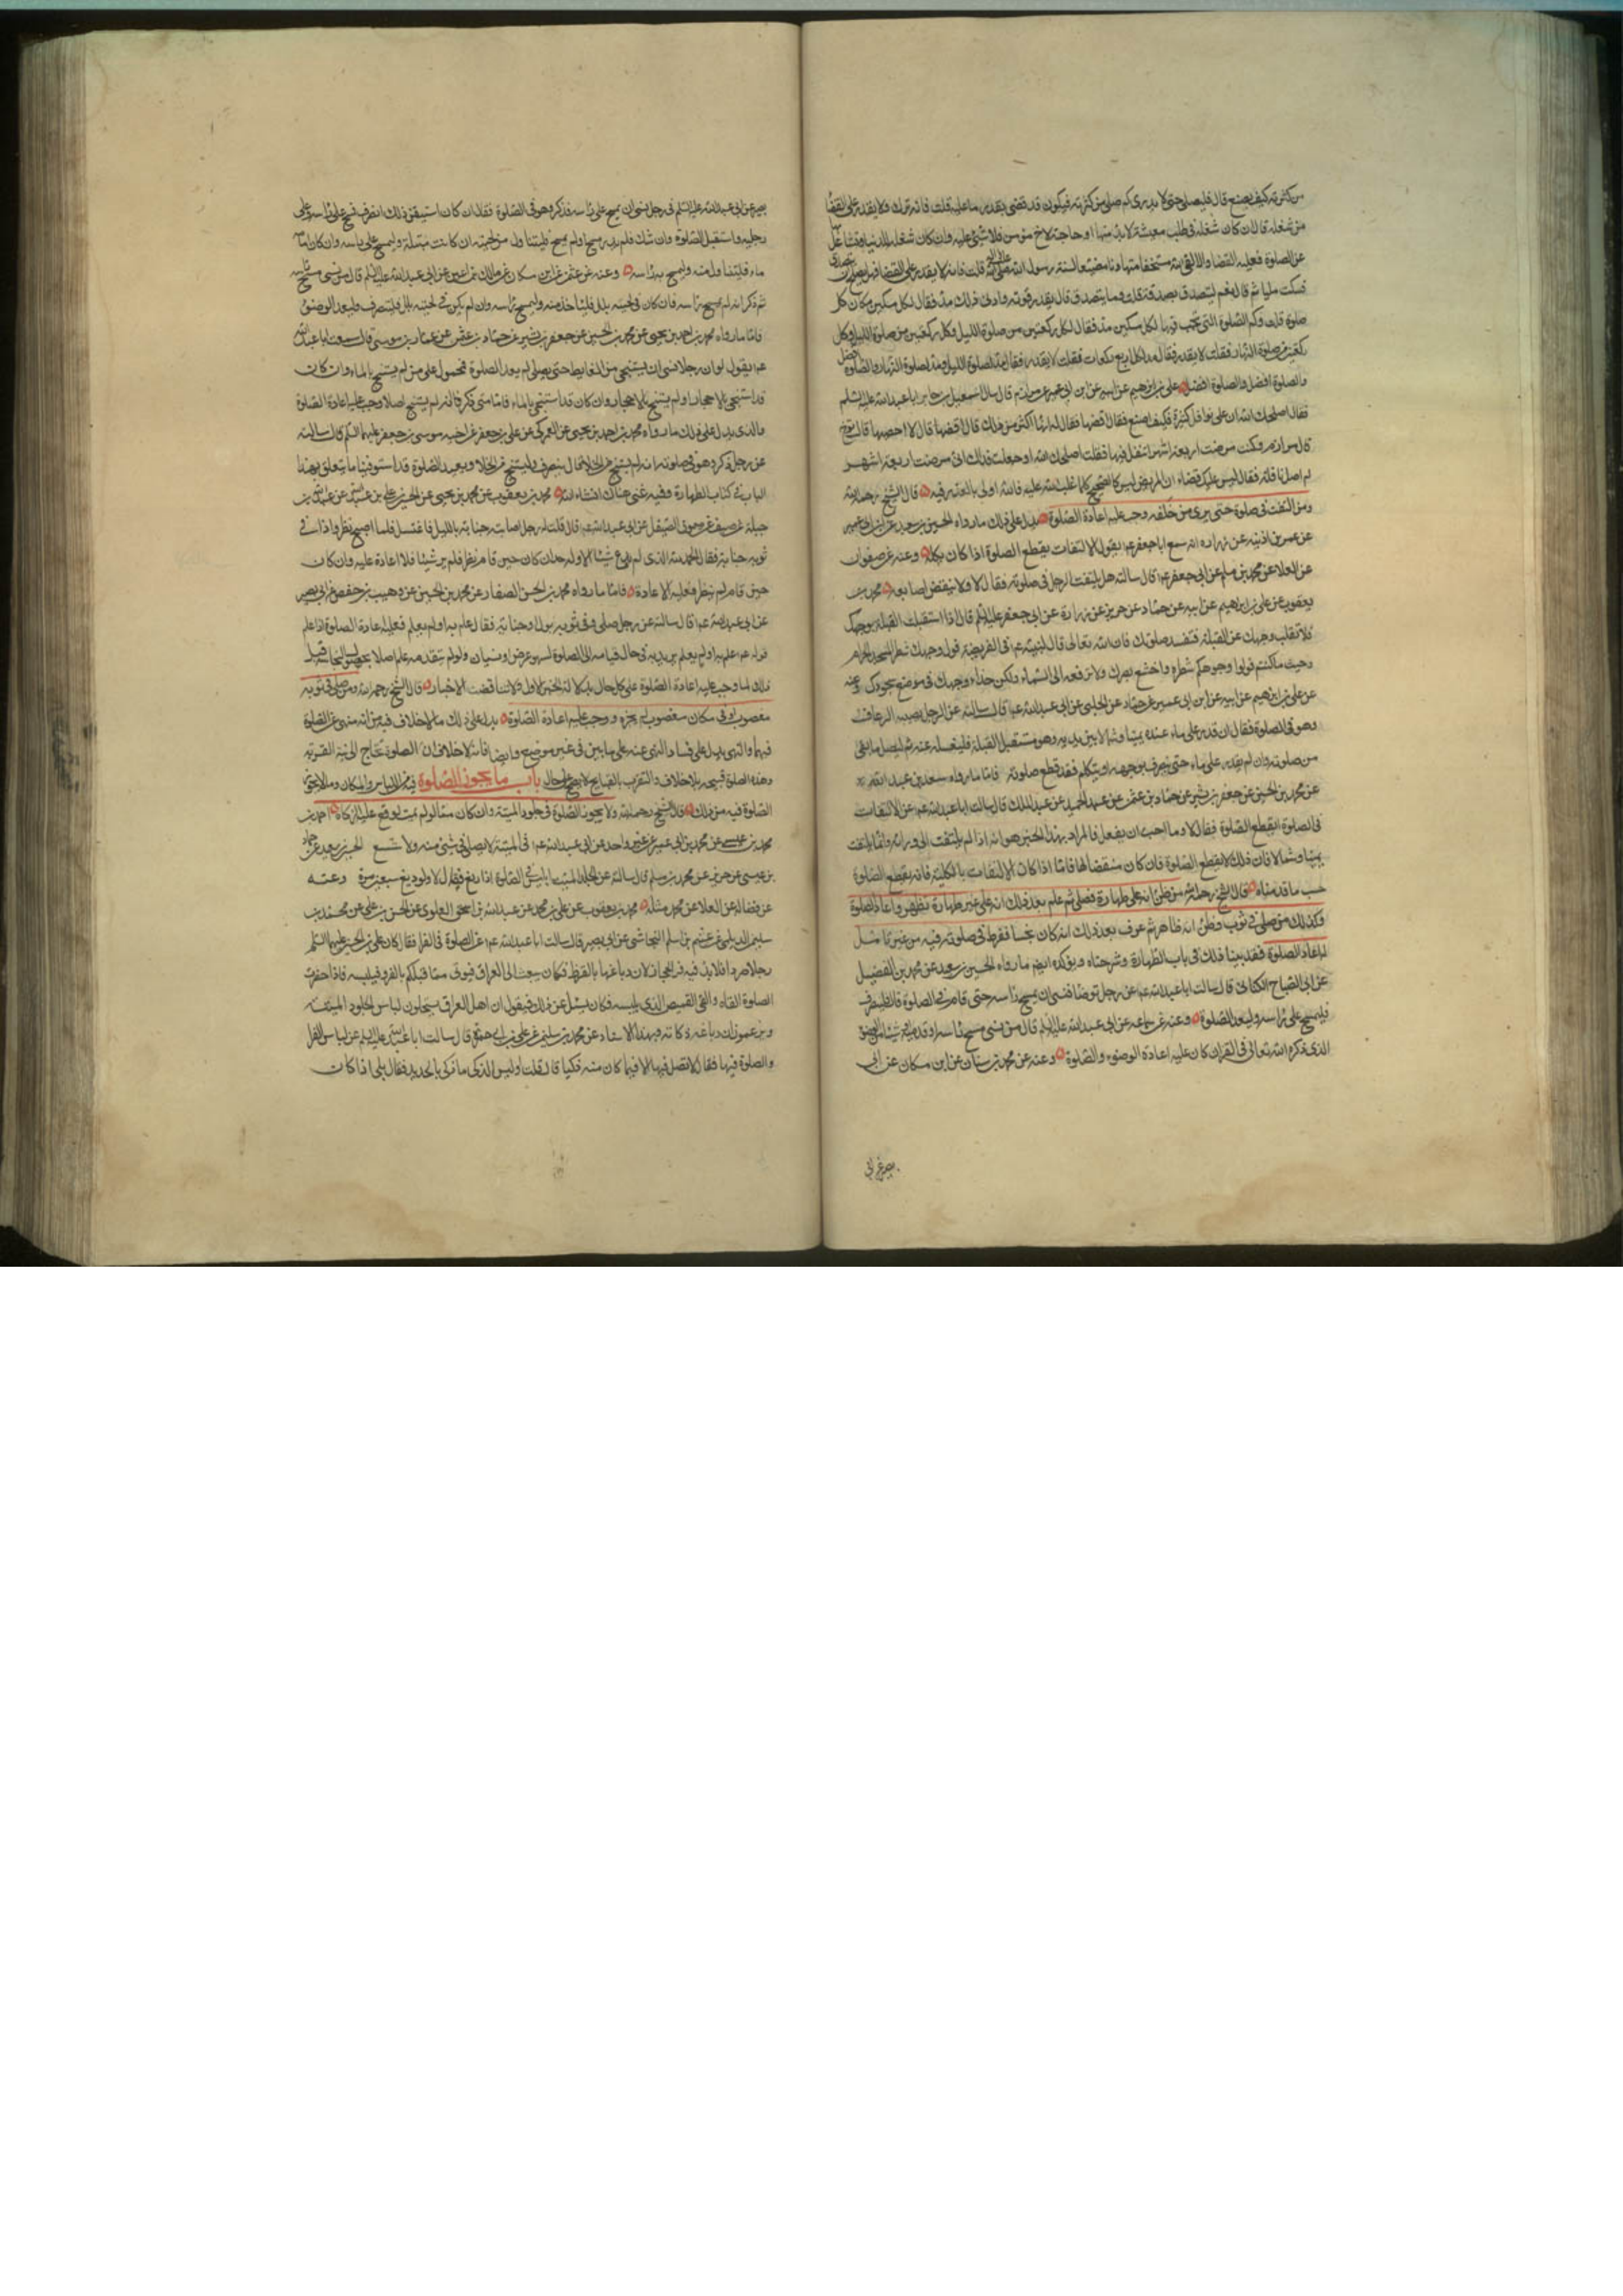 من كثرته كيف يصنع قال فليصل حتى لا يدرى كم صلى من كثرته فيكون قد قضى بقدر ما عليه قلت فانه ترك ولا يقدر على القضا
من شغله قال ان كان شغله فى طلب معيشة لا بد منها او حاجة لاخ مؤمن فلا شئ عليه وان كان شغله للدنيا وتشاغل بها
عن الصلوة فعليه القضا والا لقى الله مستخفا متهاونا مضيعا لسنة رسول الله صلى الله عليه قلت فانه لا يقدر على القضا فهل يصلح ان يتصدق
فسكت مليا ثم قال نعم ليتصدق بصدقة قلت وما يتصدق قال بقدر قوته وادنى ذلك مد فقال لكل مسكين مكان كل
صلوة قلت وكم الصلوة التى تجب فيها لكل مسكين مد فقال لكل ركعتين من صلوة الليل وكل ركعتين من صلوة الليل وكل
ركعتين من صلوة النهار فقلت لا يقدر فقال مد لكل اربع ركعات فقلت لا يقدر فقال مد لصلوة الليل ومد لصلوة النهار والصلوة افضل
والصلوة افضل والصلوة افضل على بن ابرهيم عن ابيه عن ابن ابى عمير عن مرازم قال سال اسمعيل بن جابر ابا عبد الله عليه السلم
فقال اصلحك الله ان على نوافل كثيرة فكيف اصنع فقال اقضها فقال له انها اكثر من ذلك قال اقضها قال لا احصيها قال توخ
قال مرازم وكنت مرضت اربعة اشهر لم اتنفل فيها فقلت اصلحك الله او جعلت فداك انى مرضت اربعة اشهر
لم اصل نافلة فقال ليس عليك قضاء ان المريض ليس كالصحيح كلما غلب الله عليه فالله اولى بالعذر فيه قال الشيخ رحمه الله
ومن التفت فى صلوة حتى يرى من خلفه وجب عليه اعادة الصلوة يدل على ذلك ما رواه الحسين بن سعيد عن ابن ابى عمير
عن عمر بن اذينه عن زراره انه سمع ابا جعفر ع يقول الالتفات يقطع الصلوة اذا كان بكله وعنه عن صفوان
عن العلا عن محمد بن مسلم عن ابى جعفر ع قال سالته هل يلتفت الرجل فى صلوته فقال لا ولا ينقض اصابعه محمد بن
يعقوب عن على بن ابرهيم عن ابيه عن حماد عن حريز عن زرارة عن ابى جعفر عليه السلم قال اذا استقبلت القبلة بوجهك
فلا تقلب وجهك عن القبلة فتفسد صلوتك فان الله تعالى قال لنبيه ع فى الفريضة فول وجهك شطر المسجد الحرام
وحيث ما كنتم فولوا وجوهكم شطره واخشع ببصرك ولا ترفعه الى السماء ولكن حذاء وجهك فى موضع سجودك وعنه
عن على بن ابرهيم عن ابيه عن ابن ابى عمير عن حماد عن الحلبى عن ابى عبد الله ع قال سالته عن الرجل يصيبه الرعاف
وهو فى الصلوة فقال ان قدر على ماء عنده يمينا وشمالا بين يديه وهو مستقبل القبلة فليغسله عنه ثم ليصل ما بقى
من صلوته وان لم يقدر على ماء حتى ينصرف بوجهه او يتكلم فقد قطع صلوته فاما ما رواه سعد بن عبد الله
عن محمد بن الحسين عن جعفر بن بشير عن حماد بن عثمن عن عبد الحميد عن عبد الملك قال سالت ابا عبد الله ع عن الالتفات
فى الصلوة ايقطع الصلوة فقال لا وما احب ان يفعل فالمراد بهذا الخبر هو انه اذا لم يلتفت الى ورائه وانما يلتفت
يمينا وشمالا فان ذلك لا يقطع الصلوة فان كان منقصا لها فاما اذا كان الالتفات بالكلية فانه يقطع الصلوة
حسب ما قدمناه قال الشيخ رحمه الله من ظن انه على طهارة فصلى ثم علم بعد ذلك انه على غير طهارة تطهر واعاد الصلوة
وكذلك من صلى فى ثوب فظن انه طاهر ثم عرف بعد ذلك انه كان نجسا ففرط فى صلوته فيه من غير تامل
له اعاد الصلوة فقد بينا ذلك فى باب الطهارة وشرحناه ويؤكده ايضا ما رواه الحسين بن سعيد عن محمد بن الفضيل
عن ابى الصباح الكنانى قال سالت ابا عبد الله ع عن رجل توضا فنسى ان يمسح راسه حتى قام فى الصلوة قال فلينصرف
فليمسح على راسه وليعد الصلوة وعنه عن جماعه عن ابى عبد الله عليه السلم قال من نسى مسح راسه او قدميه او شيئا من الوضوء
الذى ذكره الله تعالى فى القران كان عليه اعادة الوضوء والصلوة وعنه عن محمد بن سنان عن ابن مسكان عن ابى
بصير عن ابى
بصير عن ابى عبد الله عليه السلم فى رجل نسى ان يمسح على راسه فذكر وهو فى الصلوة فقال ان كان استيقن ذلك انصرف فمسح على راسه وعلى
رجليه واستقبل الصلوة وان شك فلم يدر مسح او لم يمسح فليتناول من لحيته ان كانت مبتلة وليمسح على راسه وان كان امامه
ماء فليتناول منه وليمسح به راسه وعنه عن عثمن عن ابن مسكان عن مالك بن اعين عن ابى عبد الله عليه السلم قال من نسى مسح راسه
ثم ذكر انه لم يمسح راسه فان كان فى لحيته بلل فلياخذ منه وليمسح راسه وان لم يكن فى لحيته بلل فلينصرف وليعد الوضوء
فاما ما رواه محمد بن احمد بن يحيى عن محمد بن الحسين عن جعفر بن بشير عن حماد بن عثمن عن عمار بن موسى قال سمعت ابا عبد الله
ع يقول لو ان رجلا نسى ان يستنجى من الغايط حتى يصلى لم يعد الصلوة فمحمول على من لم يستنج بالماء وان كان
قد استنجى بالاحجار او لم يستنج بالاحجار وان كان قد استنجى بالماء فاما متى ذكر فانه لم يستنج اصلا وجب عليه اعادة الصلوة
والذى يدل على ذلك ما رواه محمد بن احمد بن يحيى عن العمركى عن على بن جعفر عن اخيه موسى بن جعفر عليهما السلم قال سالته
عن رجل ذكر وهو فى صلوته انه لم يستنج من الخلا قال ينصرف وليستنج من الخلا ويعيد الصلوة قد استوفينا ما يتعلق بهذا
الباب فى كتاب الطهارة وفيه غنى هناك انشاء الله محمد بن يعقوب عن محمد بن يحيى عن الحسن بن على بن عبد الله عن عبد الله بن
جبلة عن سيف عن ميمون الصيقل عن ابى عبد الله ع قال قلت له رجل اصابته جنابة بالليل فاغتسل فلما اصبح نظر واذا فى
ثوبه جنابة فقال الحمد لله الذى لم يدع شيئا الا وله حد ان كان حين قام نظر فلم ير شيئا فلا اعادة عليه وان كان
حين قام لم ينظر فعليه الاعادة فاما ما رواه محمد بن الحسن الصفار عن محمد بن الحسين عن وهيب بن حفص عن ابى بصير
عن ابى عبد الله ع قال سالته عن رجل صلى وفى ثوبه بول او جنابة فقال علم به او لم يعلم فعليه اعادة الصلوة اذا علم
قوله ع علم به او لم يعلم يريد به فى حال قيامه الى الصلوة لسهو عرض ونسيان ولو لم يتقدمه علم اصلا بحصول النجاسة قبل
ذلك لما وجب عليه اعادة الصلوة على كل حال بدلالة الخبر الاول ولا تناقضت الاخبار قال الشيخ رحمه الله ومن صلى فى ثوب
مغصوب او فى مكان مغصوب لم يجزه ووجب عليه اعادة الصلوة يدل على ذلك ما لا خلاف فيه من انه منهى عن الصلوة
فيهما والنهى يدل على فساد المنهى عنه على ما بين فى غير موضع وايضا فانه لا خلاف ان الصلوة تحتاج الى نية القربة
وهذه الصلوة قبيحة بلا خلاف والتقرب بالقبايح لا يصح على حال باب ما يجوز الصلوة فيه من اللباس والمكان وما لا يجوز
الصلوة فيه من ذلك قال الشيخ رحمه الله ولا يجوز الصلوة فى جلود الميتة وان كان مما لو لم يمت لوقع عليه الزكاة احمد بن
محمد بن عيسى عن محمد بن ابى عمير عن غير واحد عن ابى عبد الله ع فى الميتة لا تصل فى شئ منه ولا شسع الحسين بن سعيد عن حماد
بن عيسى عن حريز عن محمد بن مسلم قال سالته عن الجلد الميت ايلبس فى الصلوة اذا دبغ فقال لا ولو دبغ سبعين مرة وعنه
عن فضاله عن العلا عن محمد مثله محمد بن يعقوب عن على بن محمد عن عبد الله بن اسحق العلوى عن الحسن بن على عن محمد بن
سليمن الديلمى عن عيثم بن اسلم النجاشى عن ابى بصير قال سالت ابا عبد الله ع عن الصلوة فى الفرا فقال كان على بن الحسين عليهما السلم
رجلا صردا فلا يدفيه فرا الحجاز لان دباغها بالقرظ فكان يبعث الى العراق فيوتى مما قبلكم بالفرو فيلبسه فاذا حضرت
الصلوة القاه والقى القميص الذى يليسه فكان يسئل عن ذلك فيقول ان اهل العراق يستحلون لباس الجلود الميتة
ويزعمون ان دباغه ذكاته وبهذا الاسناد عن محمد بن سليمن عن على بن ابى حمزة قال سالت ابا عبد الله عليه السلم عن لباس الفرا
والصلوة فيها فقال لا تصل فيها الا فيما كان منه ذكيا قال قلت اوليس الذكى ما ذكى بالحديد فقال بلى اذا كان